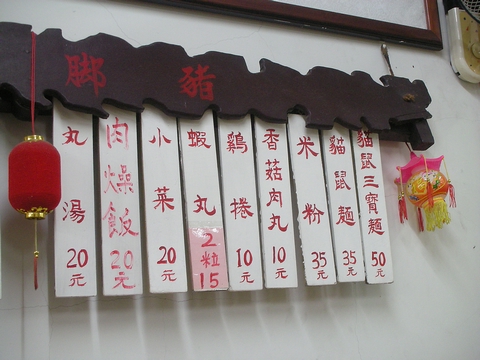 豬腳
貓鼠三寶麵 50元
貓鼠麵 35元
米粉 35元
香菇肉丸 10元
鷄捲 10元
蝦丸 2粒15
小菜 20元
肉燥飯 20元
丸湯 20元